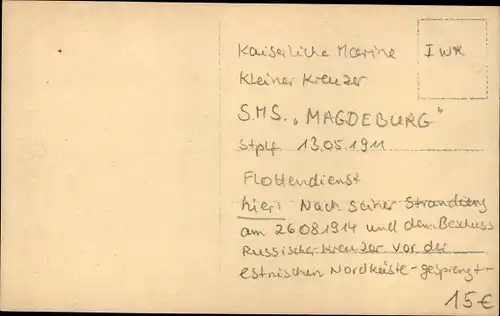 Kaiserliche Marine
I WK
Kleiner Kreuzer
S.M.S. „MAGDEBURG"
Stplf 13.05.1911
Flottendienst
hier: Nach seiner Strandung
am 26081914 und dem Beschuss
Russischer Kreuzer vor der
estnischen Nordküste - gesprengt -
15€